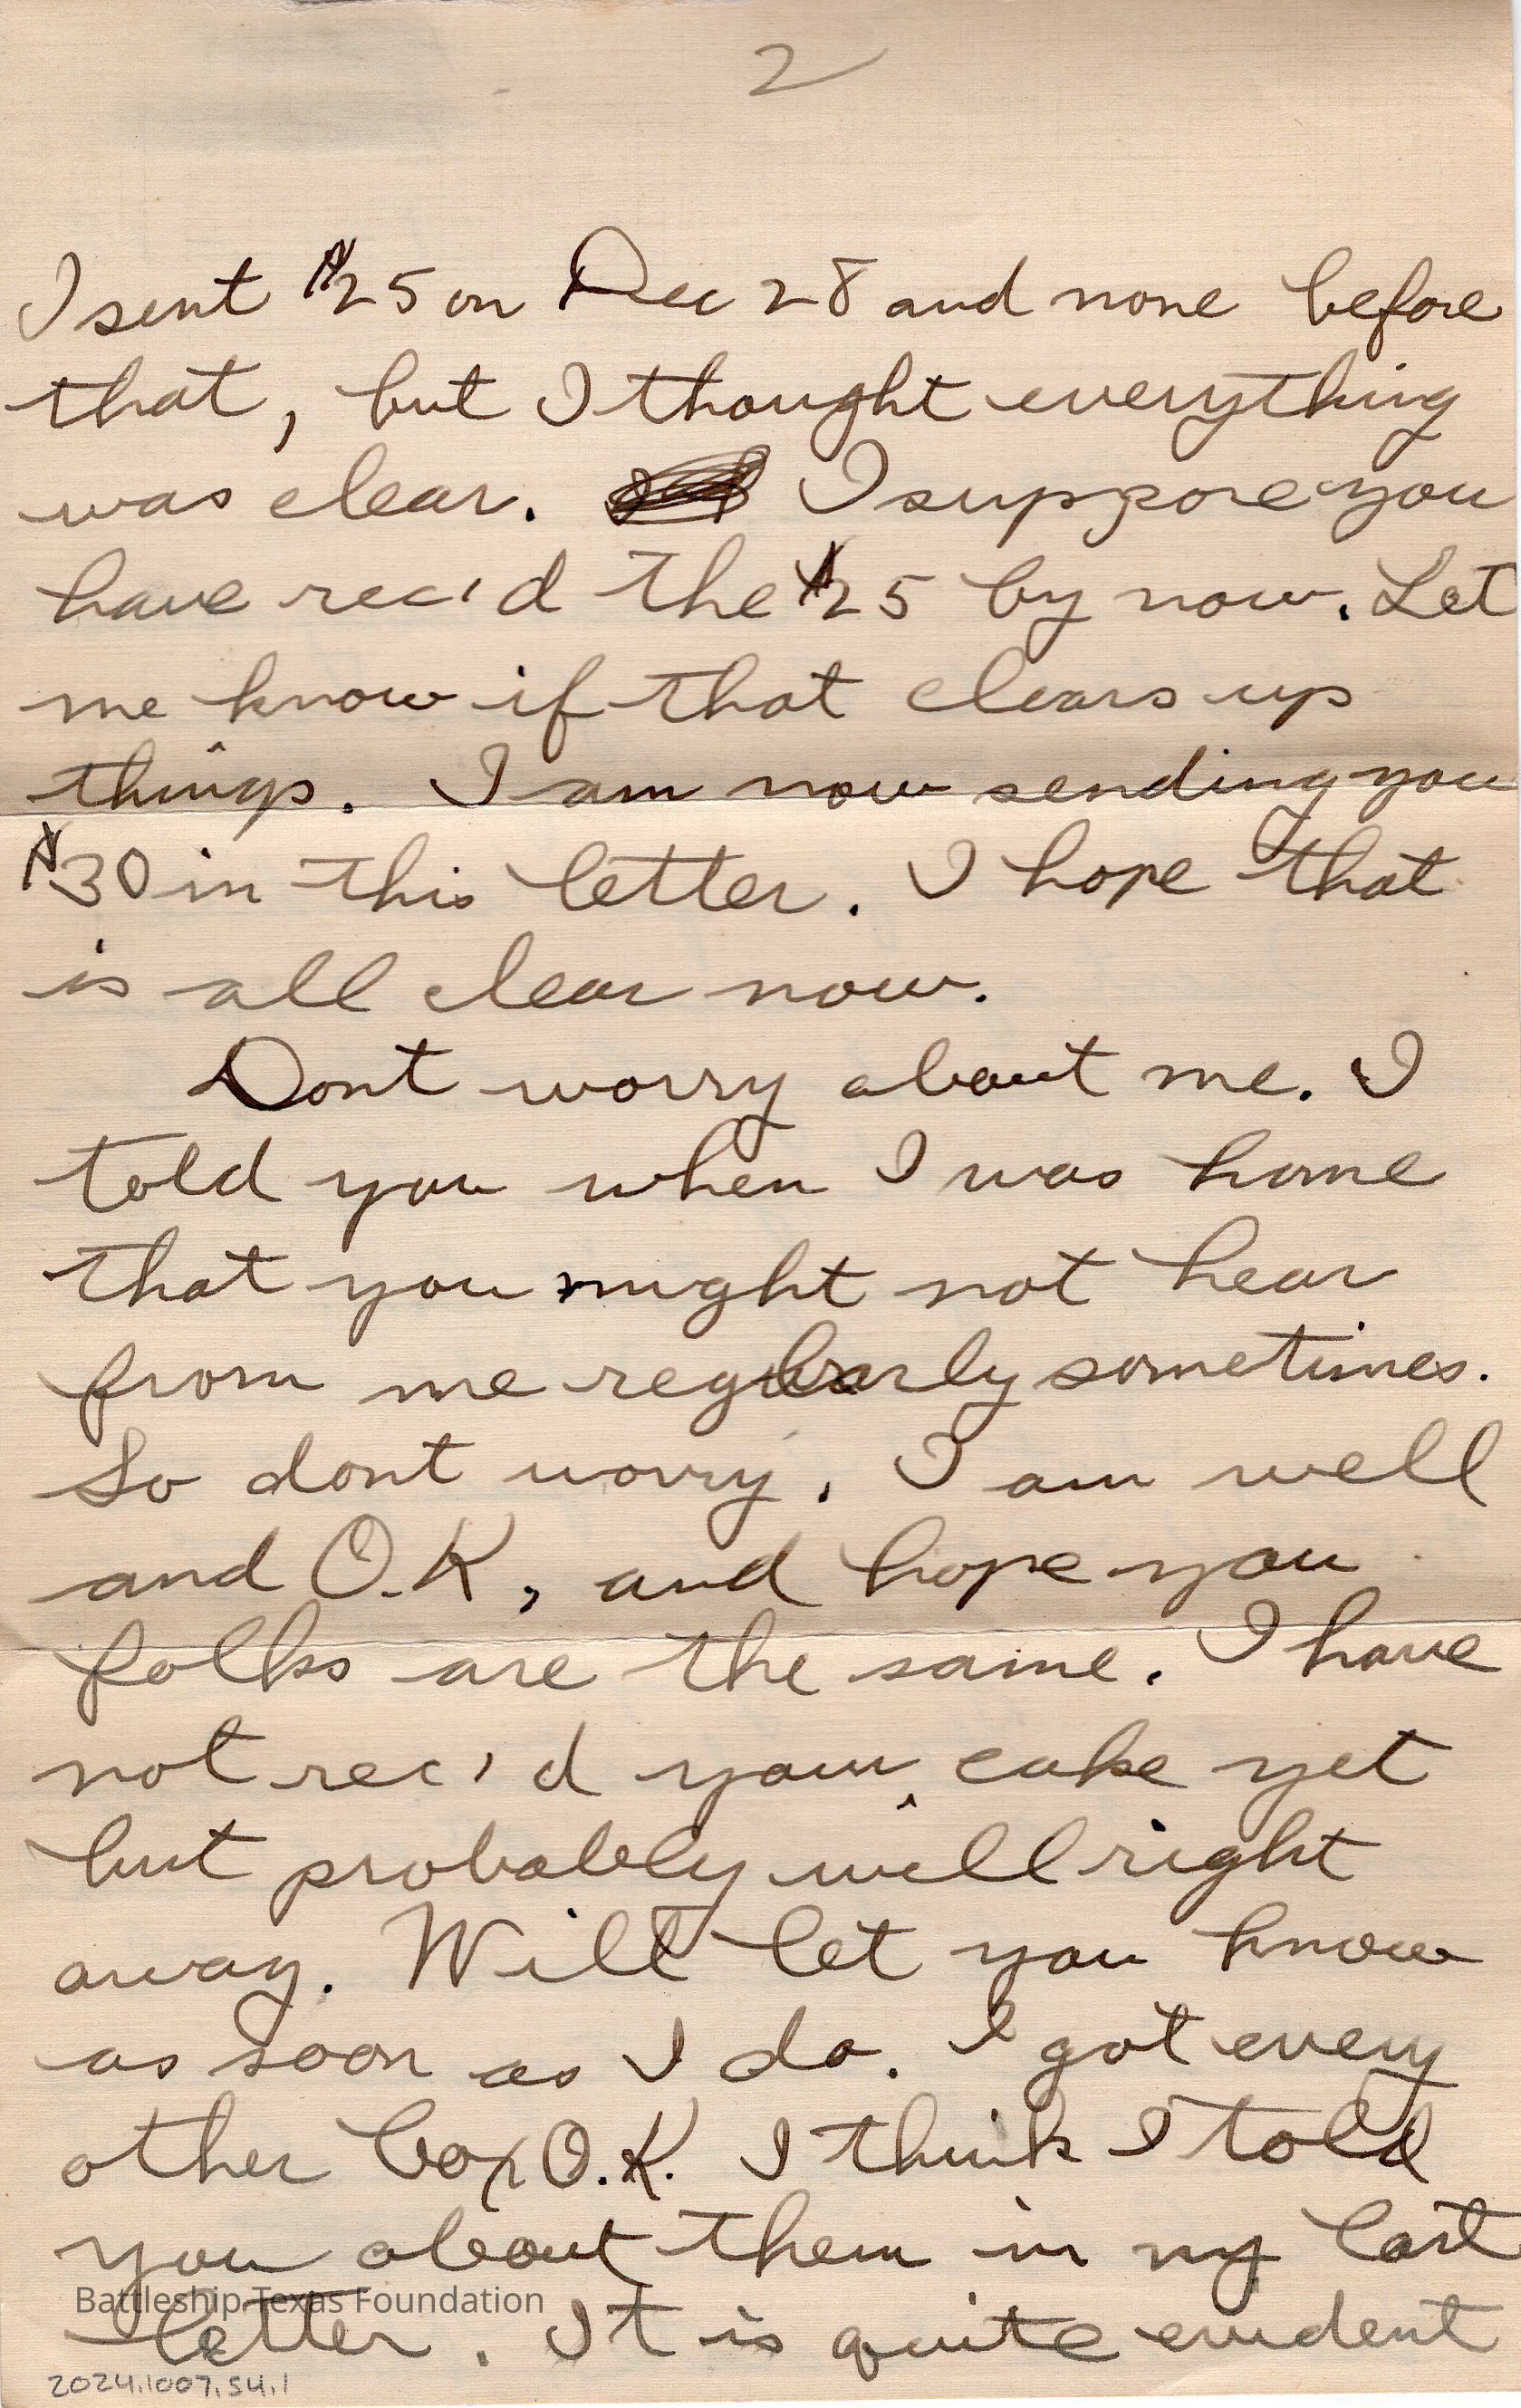 2
I sent $25 on Dec 28 and none before
that, but I thought everything
was clear. I suppose you
have rec'd the $25 by now. Let
me know if that clears up
things. I am now sending you
$30 in this letter. I hope that
is all clear now.
Dont worry about me. I
told you when I was home
that you might not hear
from me regularly sometimes.
So dont worry. I am well
and O.K, and hope you
folks are the same. I have
not rec'd your cake yet
but probably will right
away. Will let you know
as soon as I do. I got every
other box O.K. I think I told
you about them in my last
Battleship Texas Foundation
letter. It is quite evident
2024.1007.54.1